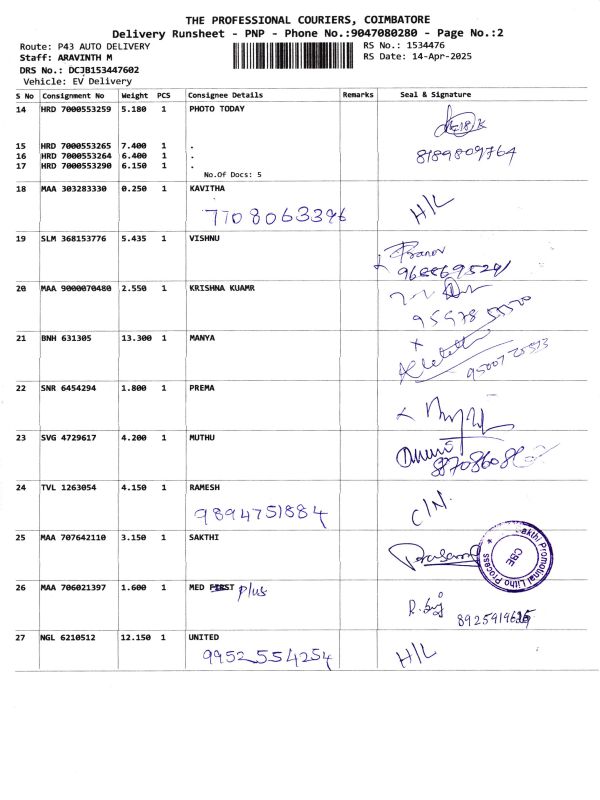 THE PROFESSIONAL COURIERS, COIMBATORE
Delivery Runsheet - PNP - Phone No.:9047080280 - Page No.:2
Route: P43 AUTO DELIVERY RS No.: 1534476
Staff: ARAVINTH M RS Date: 14-Apr-2025
DRS No.: DCJB153447602
Vehicle: EV Delivery
S No Consignment No Weight PCS Consignee Details Remarks Seal & Signature
14 HRD 7000553259 5.180 1 PHOTO TODAY
15 HRD 7000553265 7.400 1 .
16 HRD 7000553264 6.400 1 . 8189809764
17 HRD 7000553290 6.150 1 .
No.Of Docs: 5
18 MAA 303283330 0.250 1 KAVITHA
7708063396 H/L
19 SLM 368153776 5.435 1 VISHNU
9688695291
20 MAA 9000070480 2.550 1 KRISHNA KUAMR
21 BNH 631305 13.300 1 MANYA
22 SNR 6454294 1.800 1 PREMA
23 SVG 4729617 4.200 1 MUTHU
24 TVL 1263054 4.150 1 RAMESH
9894751884 C/N.
25 MAA 707642110 3.150 1 SAKTHI
Sakthi Promotional Litho Process
CBE
26 MAA 706021397 1.600 1 MED FIRST plus
27 NGL 6210512 12.150 1 UNITED
9952554254 H/L